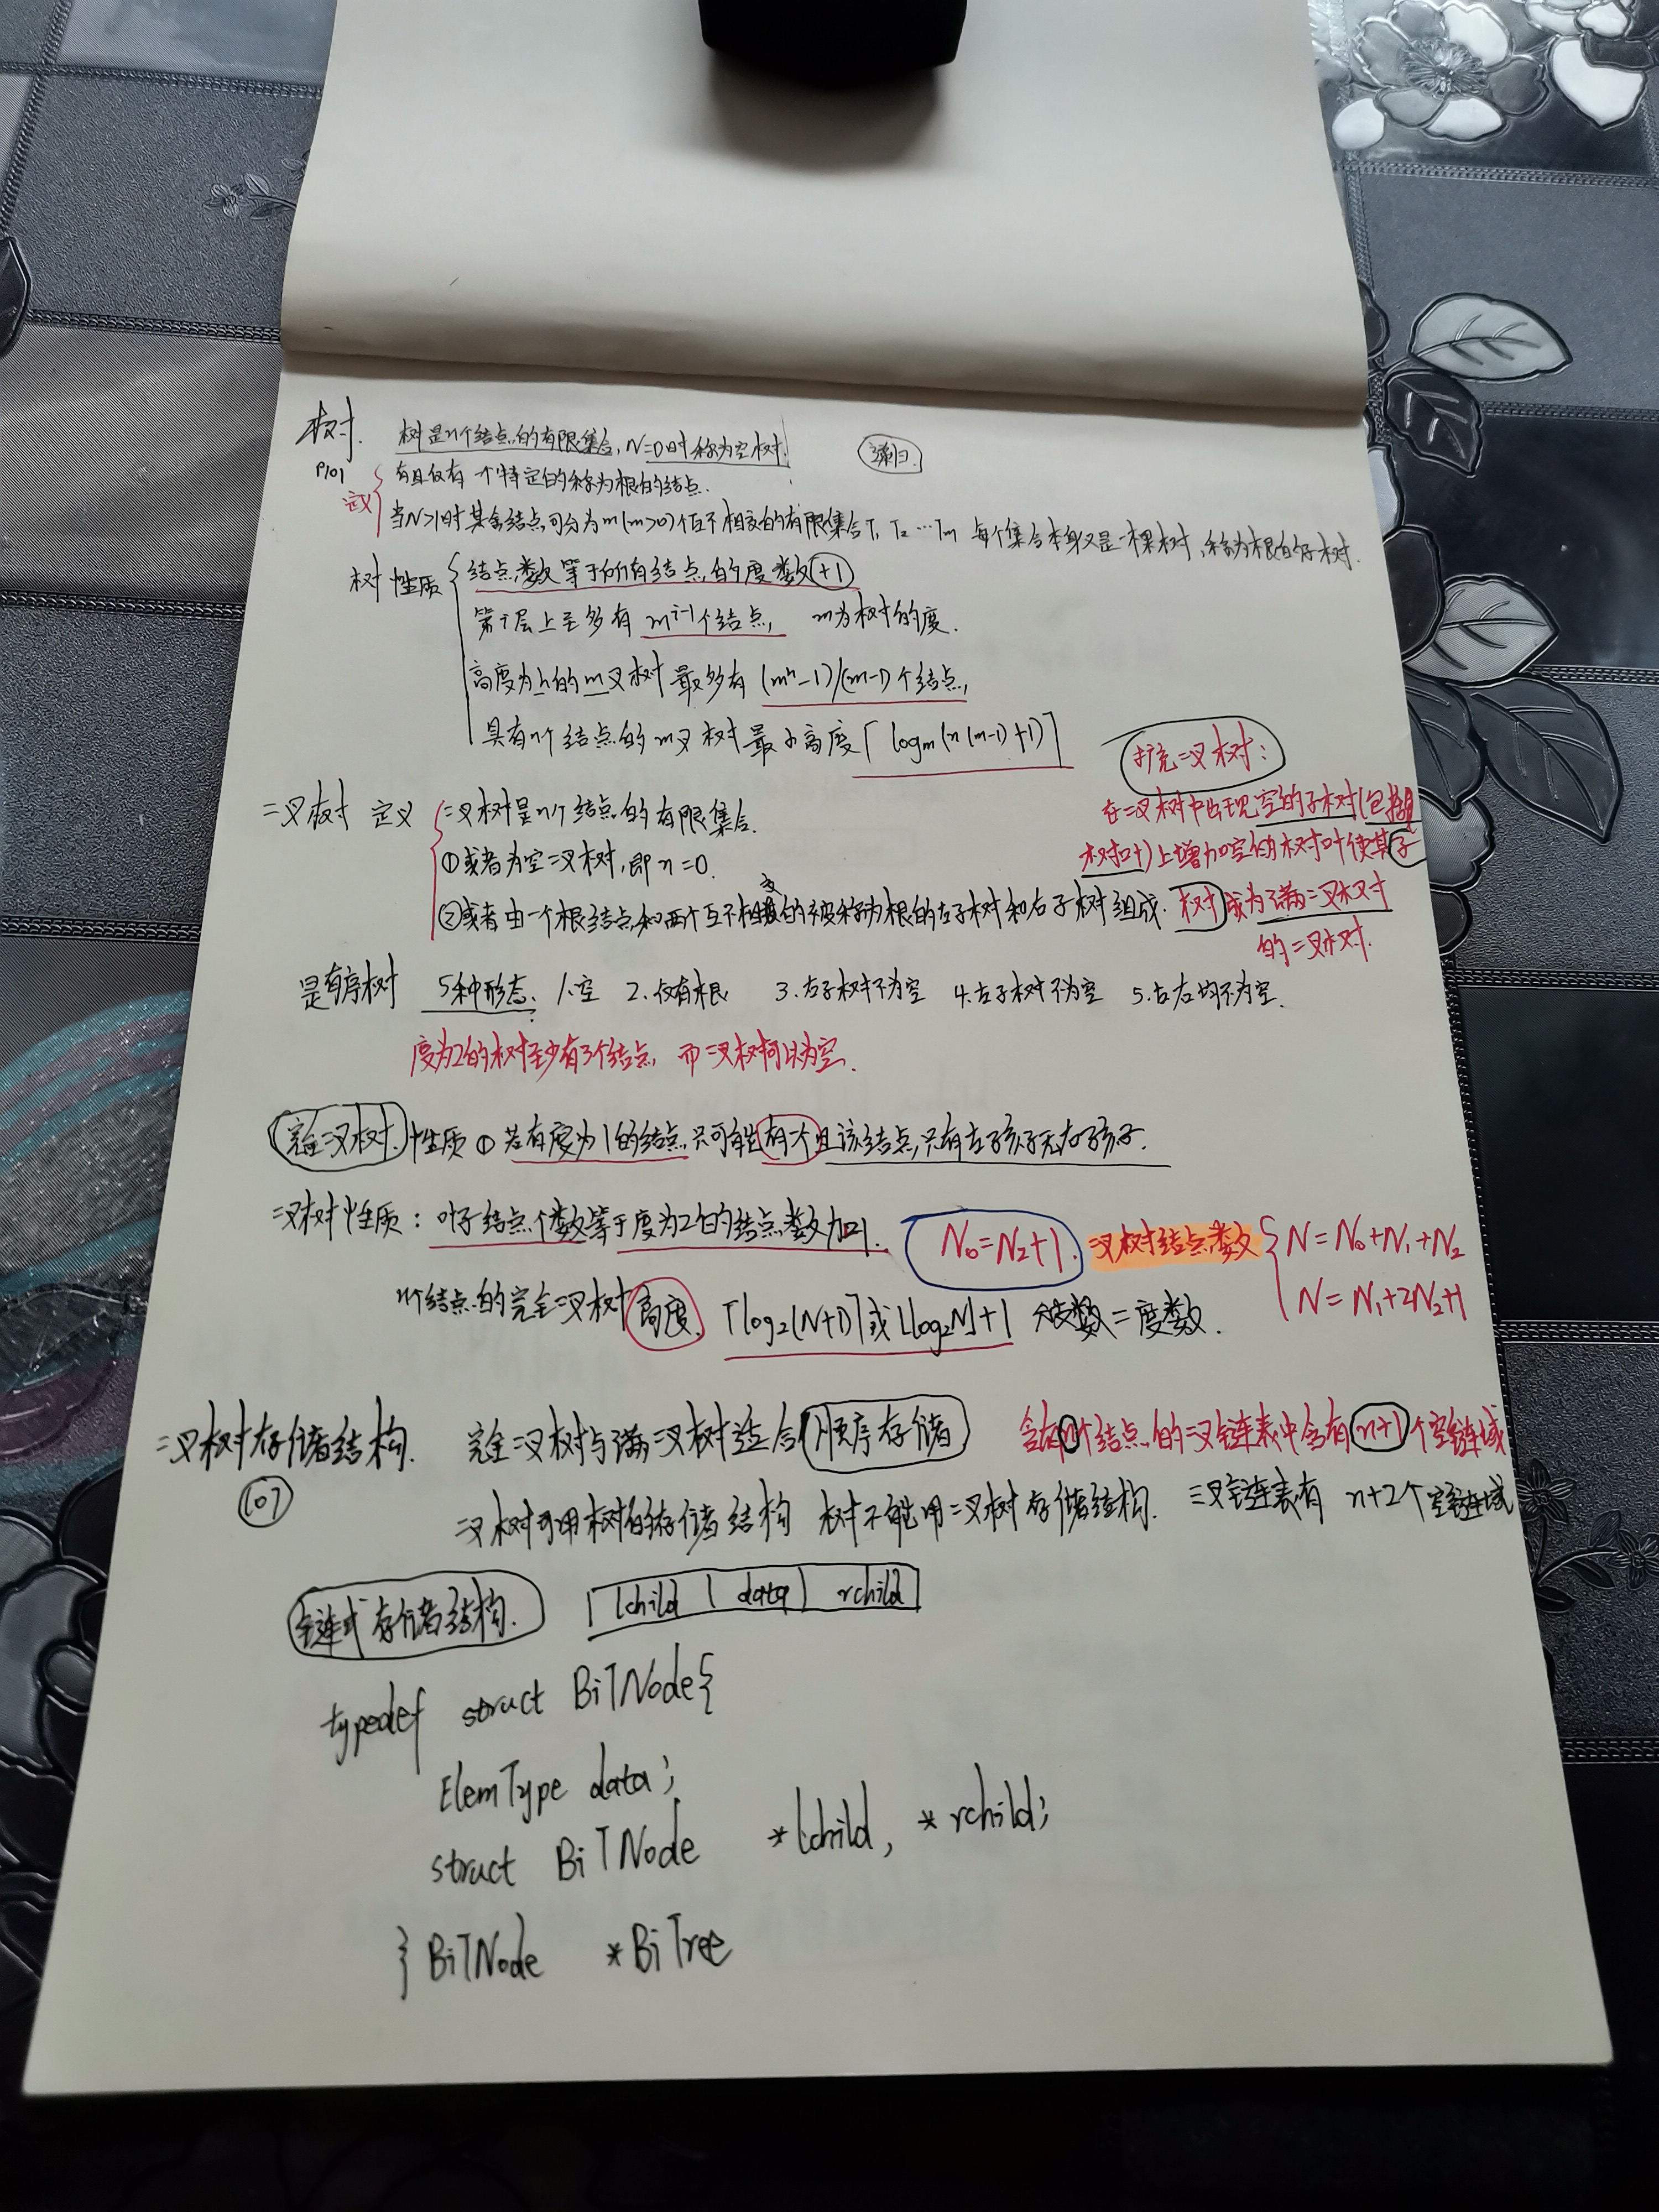 树 树是n个结点的有限集合,N=0时称为空树. 递归.
P101
定义 有且仅有一个特定的称为根的结点.
当N>1时其余结点可分为m(m>0)个互不相交的有限集合T₁ T₂ … Tm 每个集合本身又是一棵树,称为根的子树.
树 性质 结点数等于所有结点的度数+1
第i层上至多有 mⁱ⁻¹个结点, m为树的度.
高度为h的m叉树 最多有 (mʰ-1)/(m-1)个结点,
具有n个结点的m叉树 最小高度⌈logm(n(m-1)+1)⌉
扩充二叉树:
在二叉树中出现空的子树(包括
树叶)上增加空的树叶使其子
树成为满二叉树
的二叉树.
二叉树 定义 二叉树是n个结点的有限集合.
①或者为空二叉树,即n=0.
②或者由一个根结点和两个互不相交的被称为根的左子树和右子树组成.
是有序树 5种形态: 1.空 2.仅有根 3.左子树不为空 4.右子树不为空 5.左右均不为空.
度为2的树至少有3个结点,而二叉树可以为空.
完全二叉树.性质① 若有度为1的结点只可能有一个且该结点,只有左孩子无右孩子.
二叉树性质: 叶子结点个数等于度为2的结点数加1. N₀=N₂+1. 二叉树结点数 N=N₀+N₁+N₂
N=N₁+2N₂+1
n个结点的完全二叉树高度. ⌈log₂(N+1)⌉或⌊log₂N⌋+1 分支数=度数.
二叉树存储结构. 完全二叉树与满二叉树适合顺序存储 含有n个结点的二叉链表中含有n+1个空链域
107
二叉树可用树的存储结构 树不能用二叉树存储结构. 三叉链表有 n+2个空链域
链式存储结构. lchild | data | rchild
typedef struct BiTNode{
ElemType data;
struct BiTNode *lchild, *rchild;
} BiTNode *BiTree